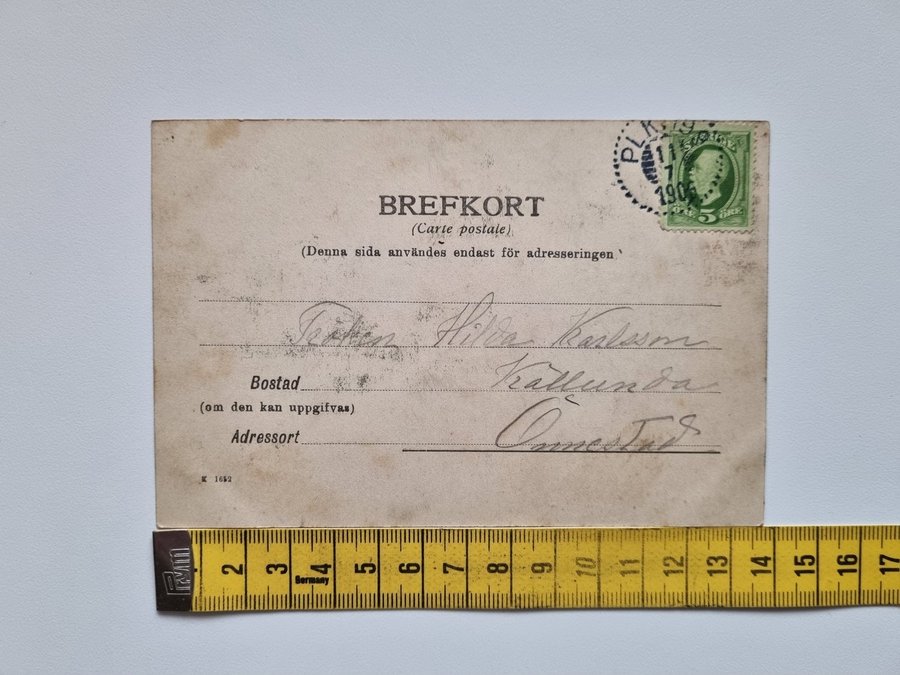 PLK
11
7
190
SVERIGE
FEM 5 ÖRE
BREFKORT
(Carte postale)
(Denna sida användes endast för adresseringen
Fröken Hilda Karlsson
Bostad Källunda
(om den kan uppgifvas)
Adressort Önnestad
K 1652
Prym 2 3 4 5 6 7 8 9 10 11 12 13 14 15 16 17
Germany